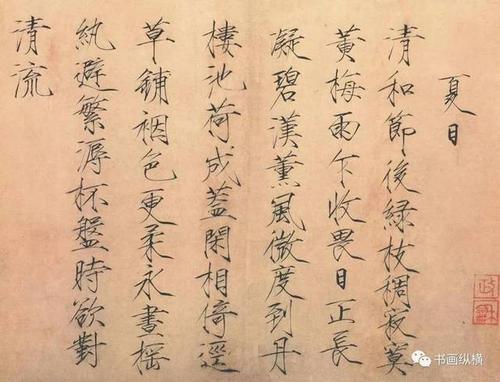 夏日
清和節後緑枝稠寂莫
黄梅雨乍收畏日正長
凝碧漢薰風微度到丹
樓池荷成蓋閑相倚逕
草鋪裀色更柔永晝揺
紈避繁溽杯盤時欲對
清流
政和
书画纵横